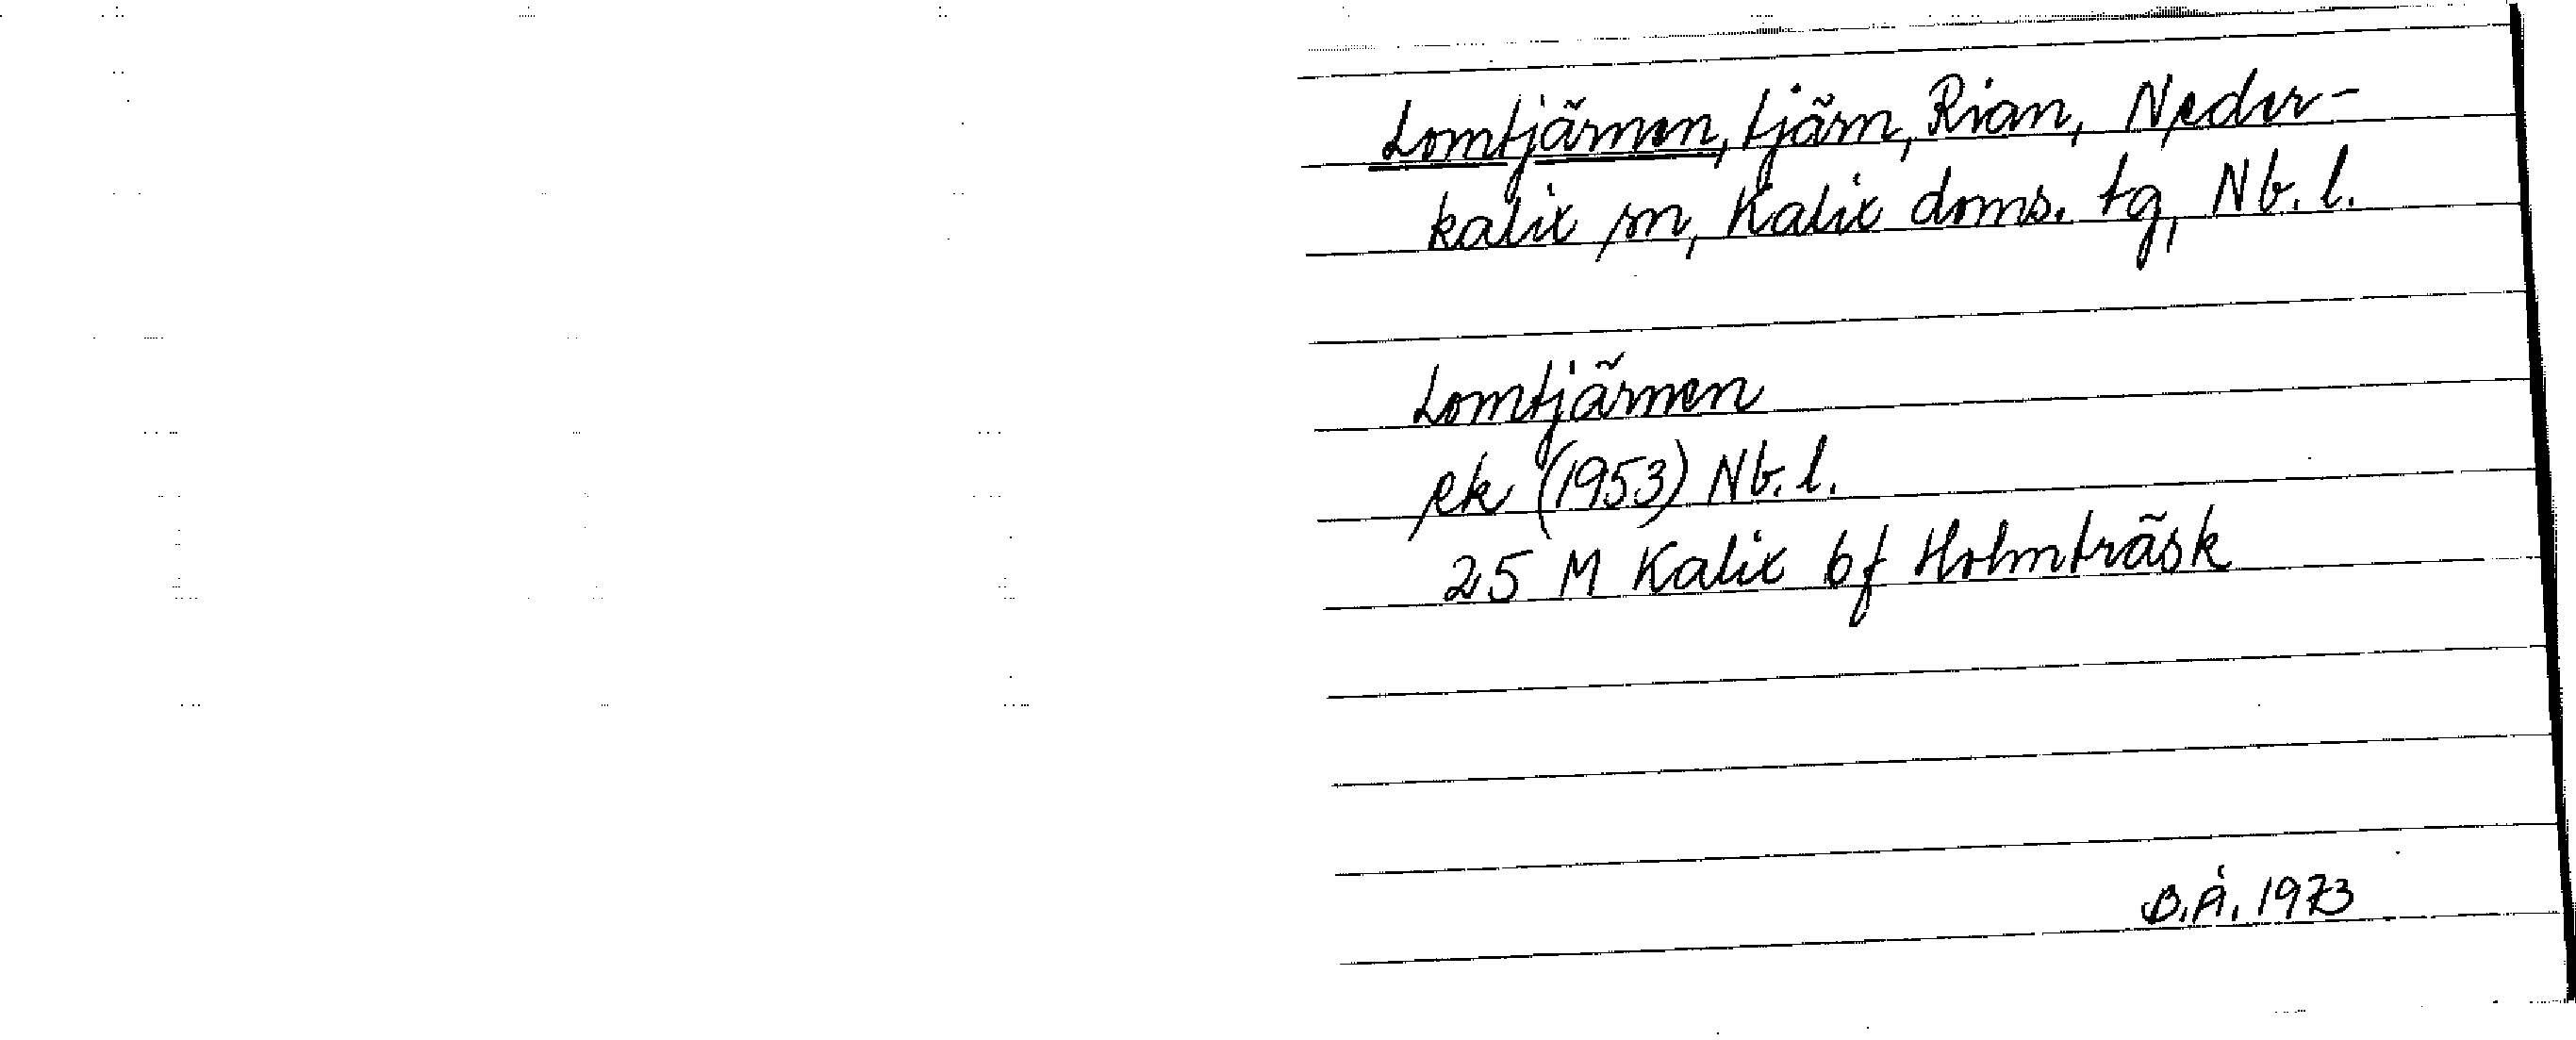 Lomtjärnen, tjärn, Rian, Neder-
kalix sn, Kalix doms. tg, Nb. l.
Lomtjärnen
ek (1953) Nb. l.
25 M Kalix bf Holmträsk
B.Å. 1973